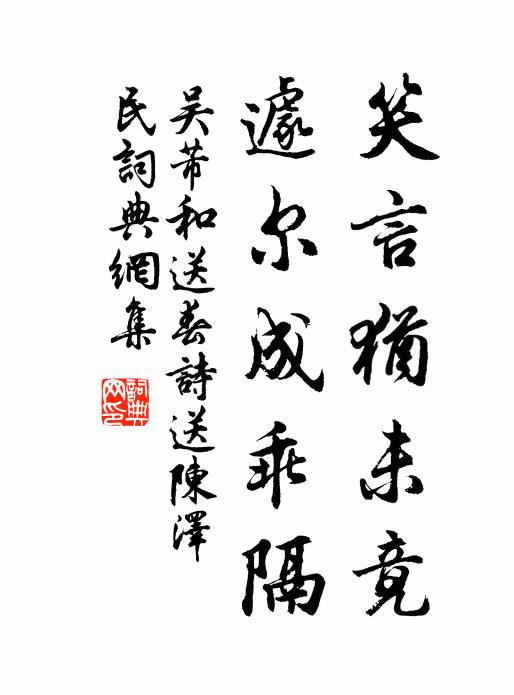 笑言猶未竟
遽尔成乖隔
吴芾和送春詩送陳澤
民詞典網集
詞典网印